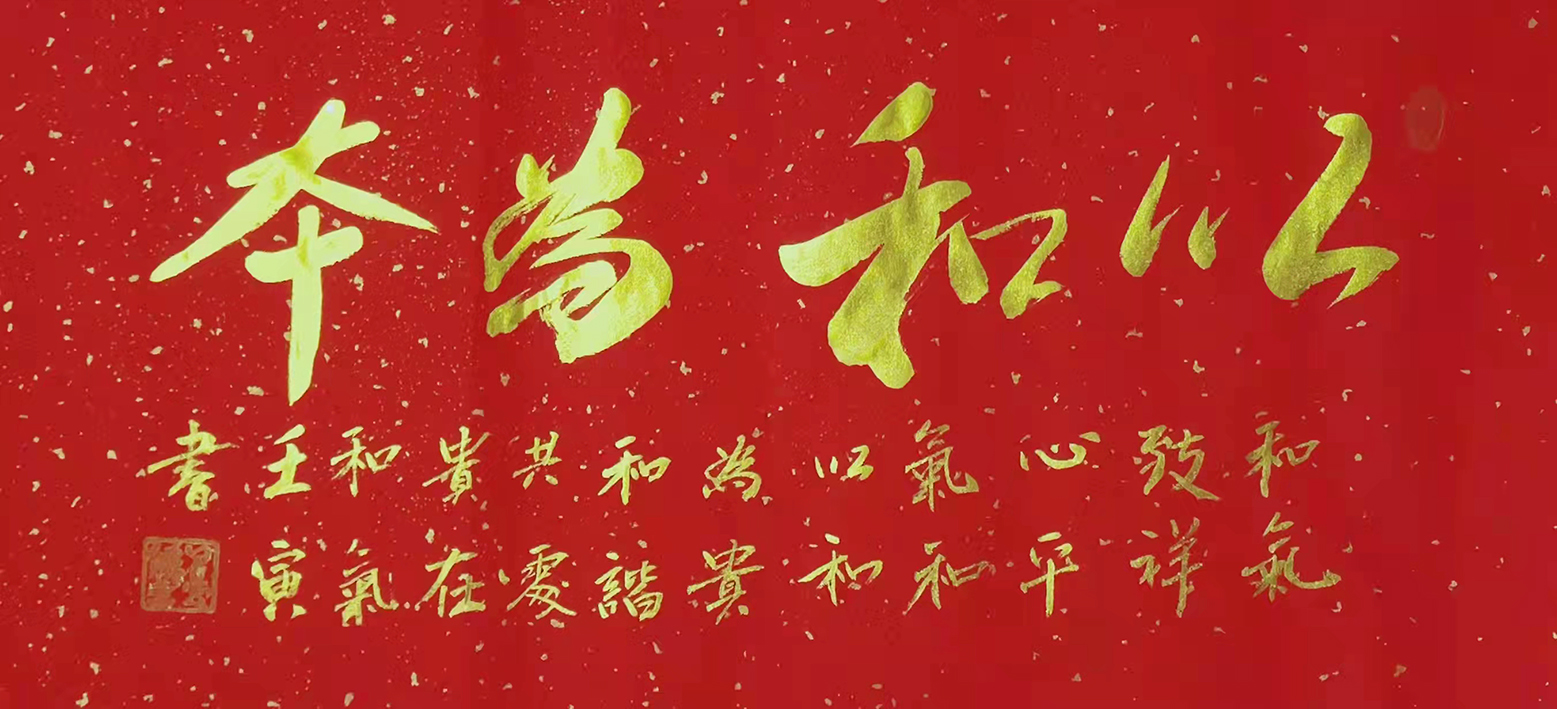 以和為本
和氣
致祥
心平
氣和
以和
為貴
和諧
共處
貴在
和氣
壬寅
書